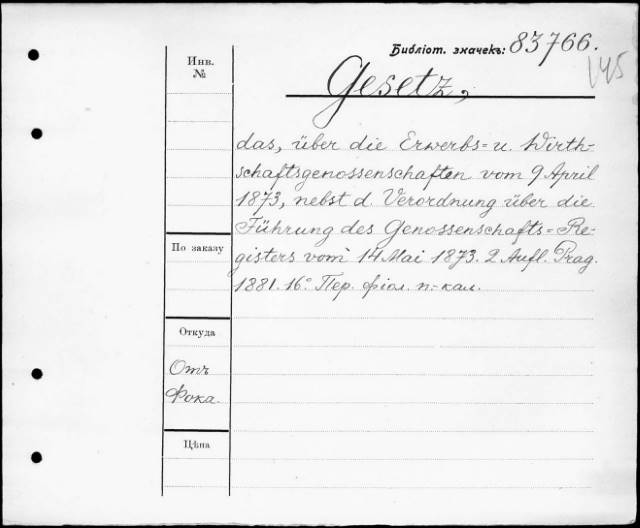 Библіот. значекъ: 83766.
145
Инв.
№
Gesetz,
das, über die Erwerbs= u. Wirth-
schaftsgenossenschaften vom 9 April
1873, nebst d. Verordnung über die
Führung des Genossenschafts=Re-
gisters vom 14 Mai 1873. 2 Aufl. Prag.
1881. 16° Пер. фіол. п.-кал.
По заказу
Откуда
Отъ
Фока.
Цѣна